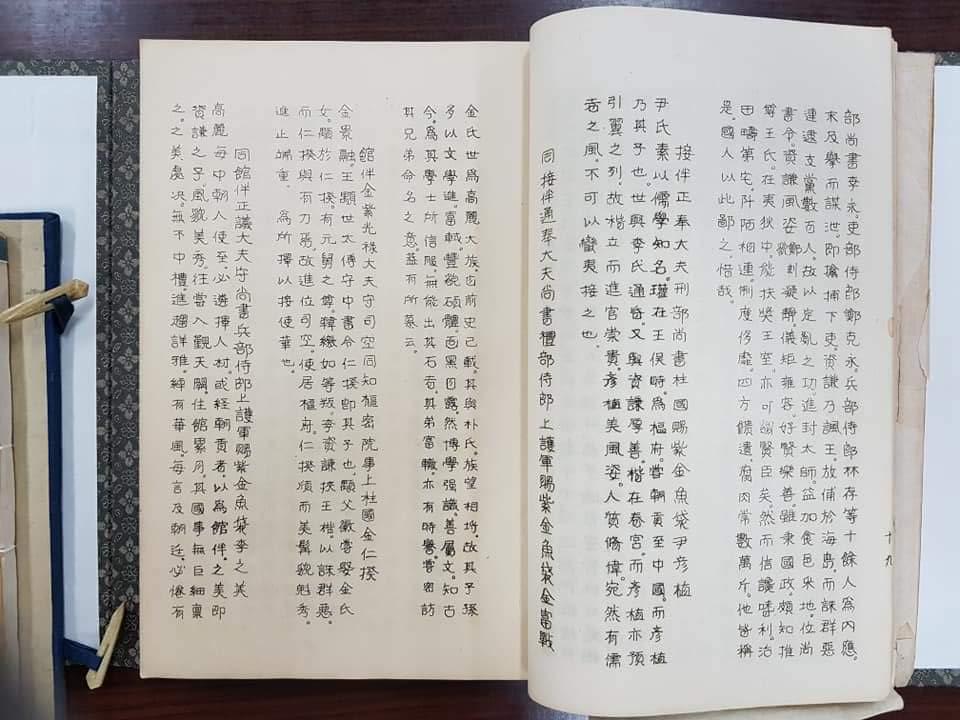 十九
部尚書李永。吏部侍郎鄭克永。兵部侍郎林存等十餘人爲內應。
未及擧而謀泄。即擒捕下吏。資謙乃諷王。放俌於海島。而誅群惡
連逮支黨數百人。故以定亂之功。進封太師。益加食邑采地。位尚
書令。資謙風姿鄭刻凝靜。儀矩雍容。好賢樂善。雖秉國政。頗知推
尊王氏。在夷狄中。能扶奬王室。亦可謂賢臣矣。然而信讒嗜利。治
田疇第宅。阡陌相連。制度侈靡。四方饋遺。腐肉常數萬斤。他皆稱
是。國人以此鄙之。惜哉。
接伴正奉大夫刑部尚書柱國賜紫金魚袋尹彥植
尹氏素以儒學知名。瓘在王俁時。爲樞府。嘗朝貢至中國。而彥植
乃其子也。世與李氏通昏。又與資謙厚善。楷在春宮。而彥植亦預
引翼之列。故楷立而進官崇貴。彥植美風姿。人質脩偉。宛然有儒
者之風。不可以蠻夷接之也。
同接伴通奉大夫尚書禮部侍郎上護軍賜紫金魚袋金富軾
金氏世爲高麗大族。自前史已載。其與朴氏。族望相埒。故其子孫
多以文學進。富軾。豐貌碩體。面黑目露。然博學强識。善屬文。知古
今。爲其學士所信服。無能出其右者。其弟富轍。亦有時譽。嘗密訪
其兄弟命名之意。蓋有所慕云。
館伴金紫光祿大夫守司空同知樞密院事上柱國金仁揆
金景融。王顒世太傅守中書令仁揆卽其子也。顒父徽嘗娶金氏
女。顒於仁揆。有元舅之尊。韓繳如等叛。李資謙挾王楷。以誅群惡。
而仁揆與有力焉。故進位司空。使居樞府。仁揆頎而美髯貌魁秀。
進止端重。爲所擇以接使華也。
同館伴正議大夫守尚書兵部侍郎上護軍賜紫金魚袋李之美
高麗每中朝人使至。必遴擇人材。或經朝貢者。以爲館伴。之美即
資謙之子。風貌美秀。往嘗入覲天闕。住館累月。其國事無巨細稟
之。之美處决。無不中禮。進趨詳雅。綽有華風。每言及朝廷。必惓有